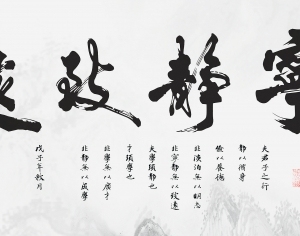 寧靜致遠
夫君子之行
靜以修身
儉以養德
非澹泊無以明志
非寧靜無以致遠
夫學須靜也
才須學也
非學無以廣才
非靜無以成學
戊子年秋月